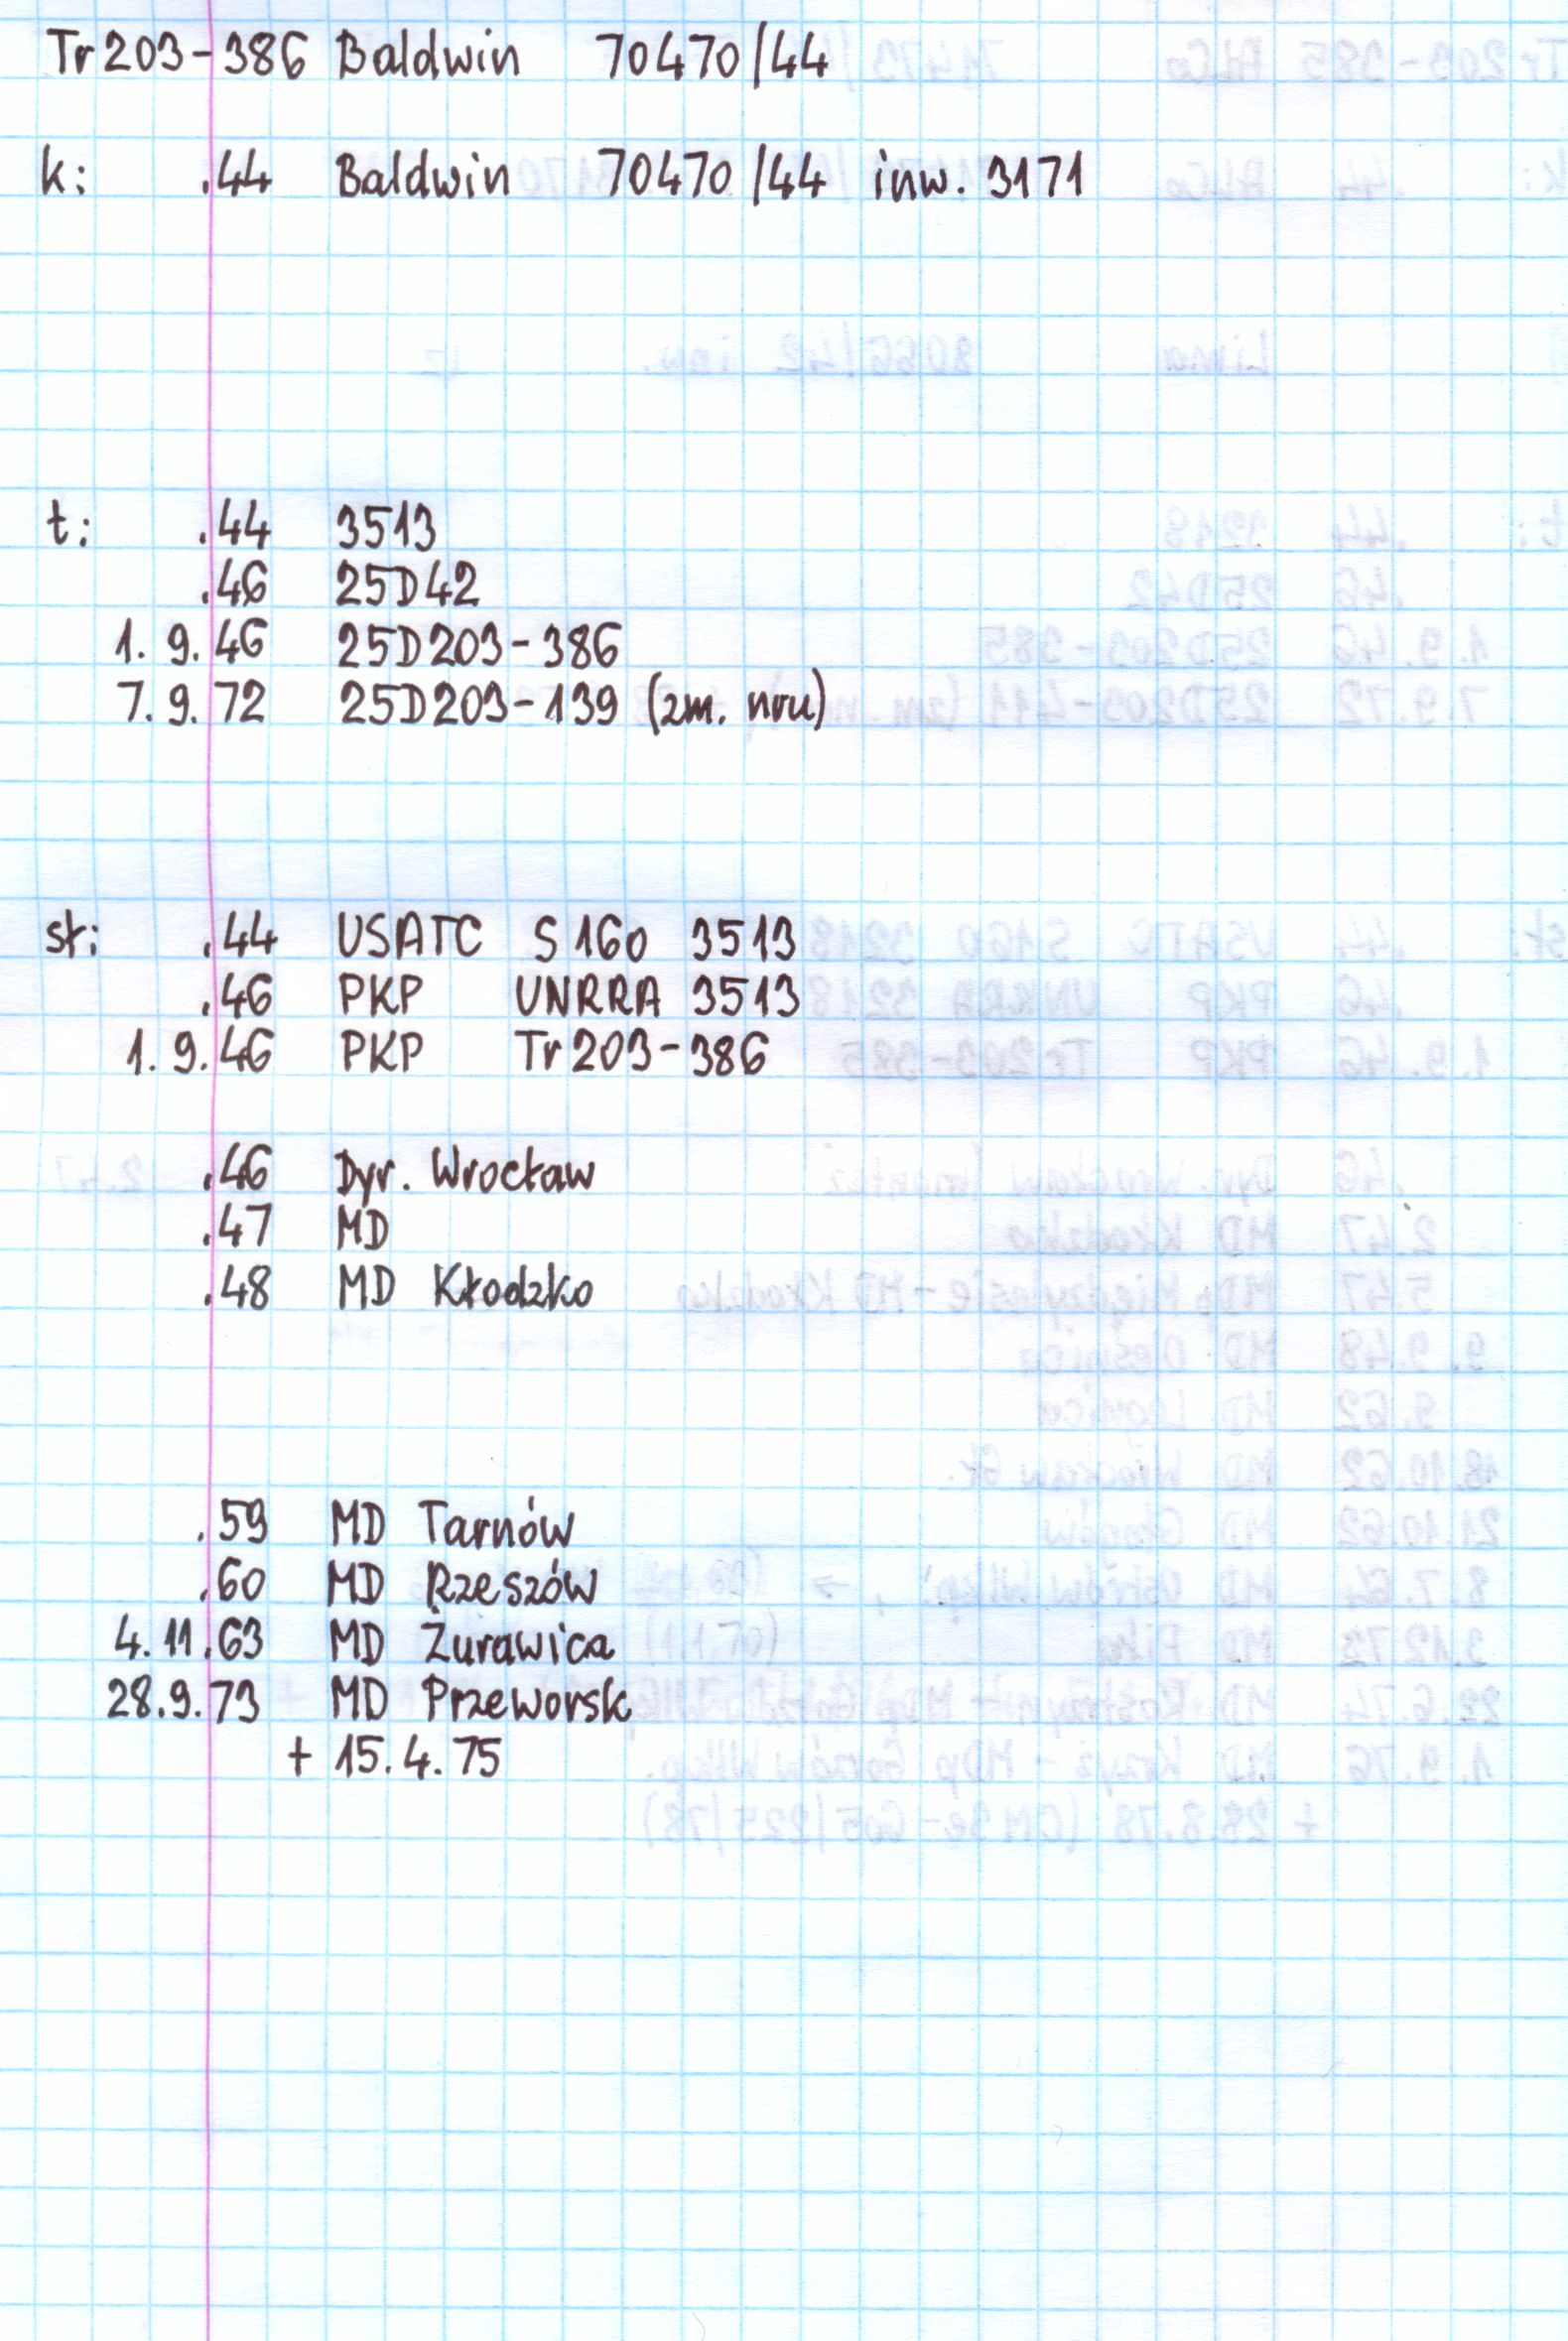 Tr203-386 Baldwin 70470/44
k: .44 Baldwin 70470/44 inw. 3171
t: .44 3513
.46 25D42
1. 9. 46 25D203-386
7. 9. 72 25D203-139 (zm. nru)
sł: .44 USATC S160 3513
.46 PKP UNRRA 3513
1. 9. 46 PKP Tr203-386
.46 Dyr. Wrocław
.47 MD
.48 MD Kłodzko
.59 MD Tarnów
.60 MD Rzeszów
4. 11. 63 MD Żurawica
28. 9. 73 MD Przeworsk
+ 15. 4. 75